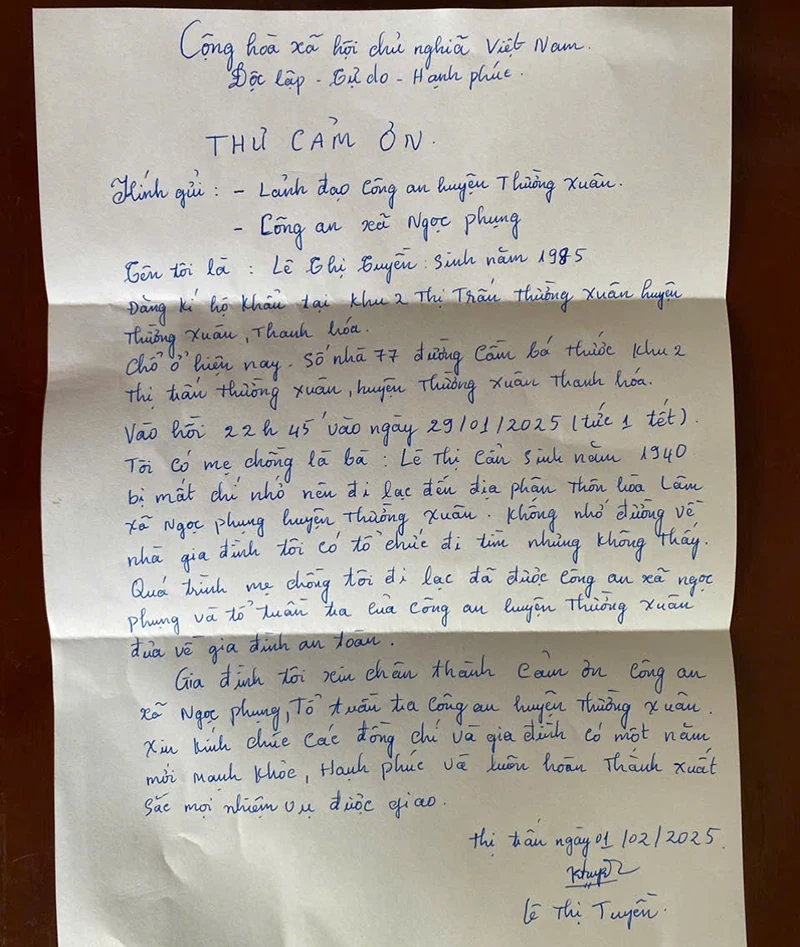 Cộng hòa xã hội chủ nghĩa Việt Nam.
Độc lập - Tự do - Hạnh phúc.
THƯ CẢM ƠN.
Kính gửi : - Lảnh đạo Công an huyện Thường Xuân.
- Công an xã Ngọc phụng
Tên tôi là : Lê Thị Tuyền : Sinh năm 1985
Đăng kí hộ khẩu tại khu 2 Thị Trấn Thường Xuân huyện
Thường Xuân, Thanh hóa.
Chổ ở hiện nay. Số nhà 77 đường Cầm bá thước khu 2
thị trấn thường xuân, huyện Thường xuân Thanh hóa.
Vào hồi 22h 45' vào ngày 29/01/2025 (tức 1 tết).
Tôi có mẹ chồng là bà : Lê Thị Cần Sinh năm 1940
bị mất chí nhớ nên đi lạc đến địa phận thôn hòa Lâm
xã Ngọc phụng huyện Thường Xuân. không nhớ đường về
nhà gia đình tôi có tổ chức đi tìm nhưng không thấy.
Quá trình mẹ chồng tôi đi lạc đã được công an xã ngọc
phụng và tổ tuần tra của Công an huyện Thường Xuân
đưa về gia đình an toàn.
Gia đình tôi xin chân thành cảm ơn công an
xã Ngọc phụng, Tổ tuần tra Công an huyện Thường Xuân.
Xin kính chúc các đồng chí và gia đình có một năm
mới mạnh khỏe, Hạnh phúc và luôn hoàn thành xuất
sắc mọi nhiệm vụ được giao.
thị trấn ngày 01/02/2025.
Lê Thị Tuyền.